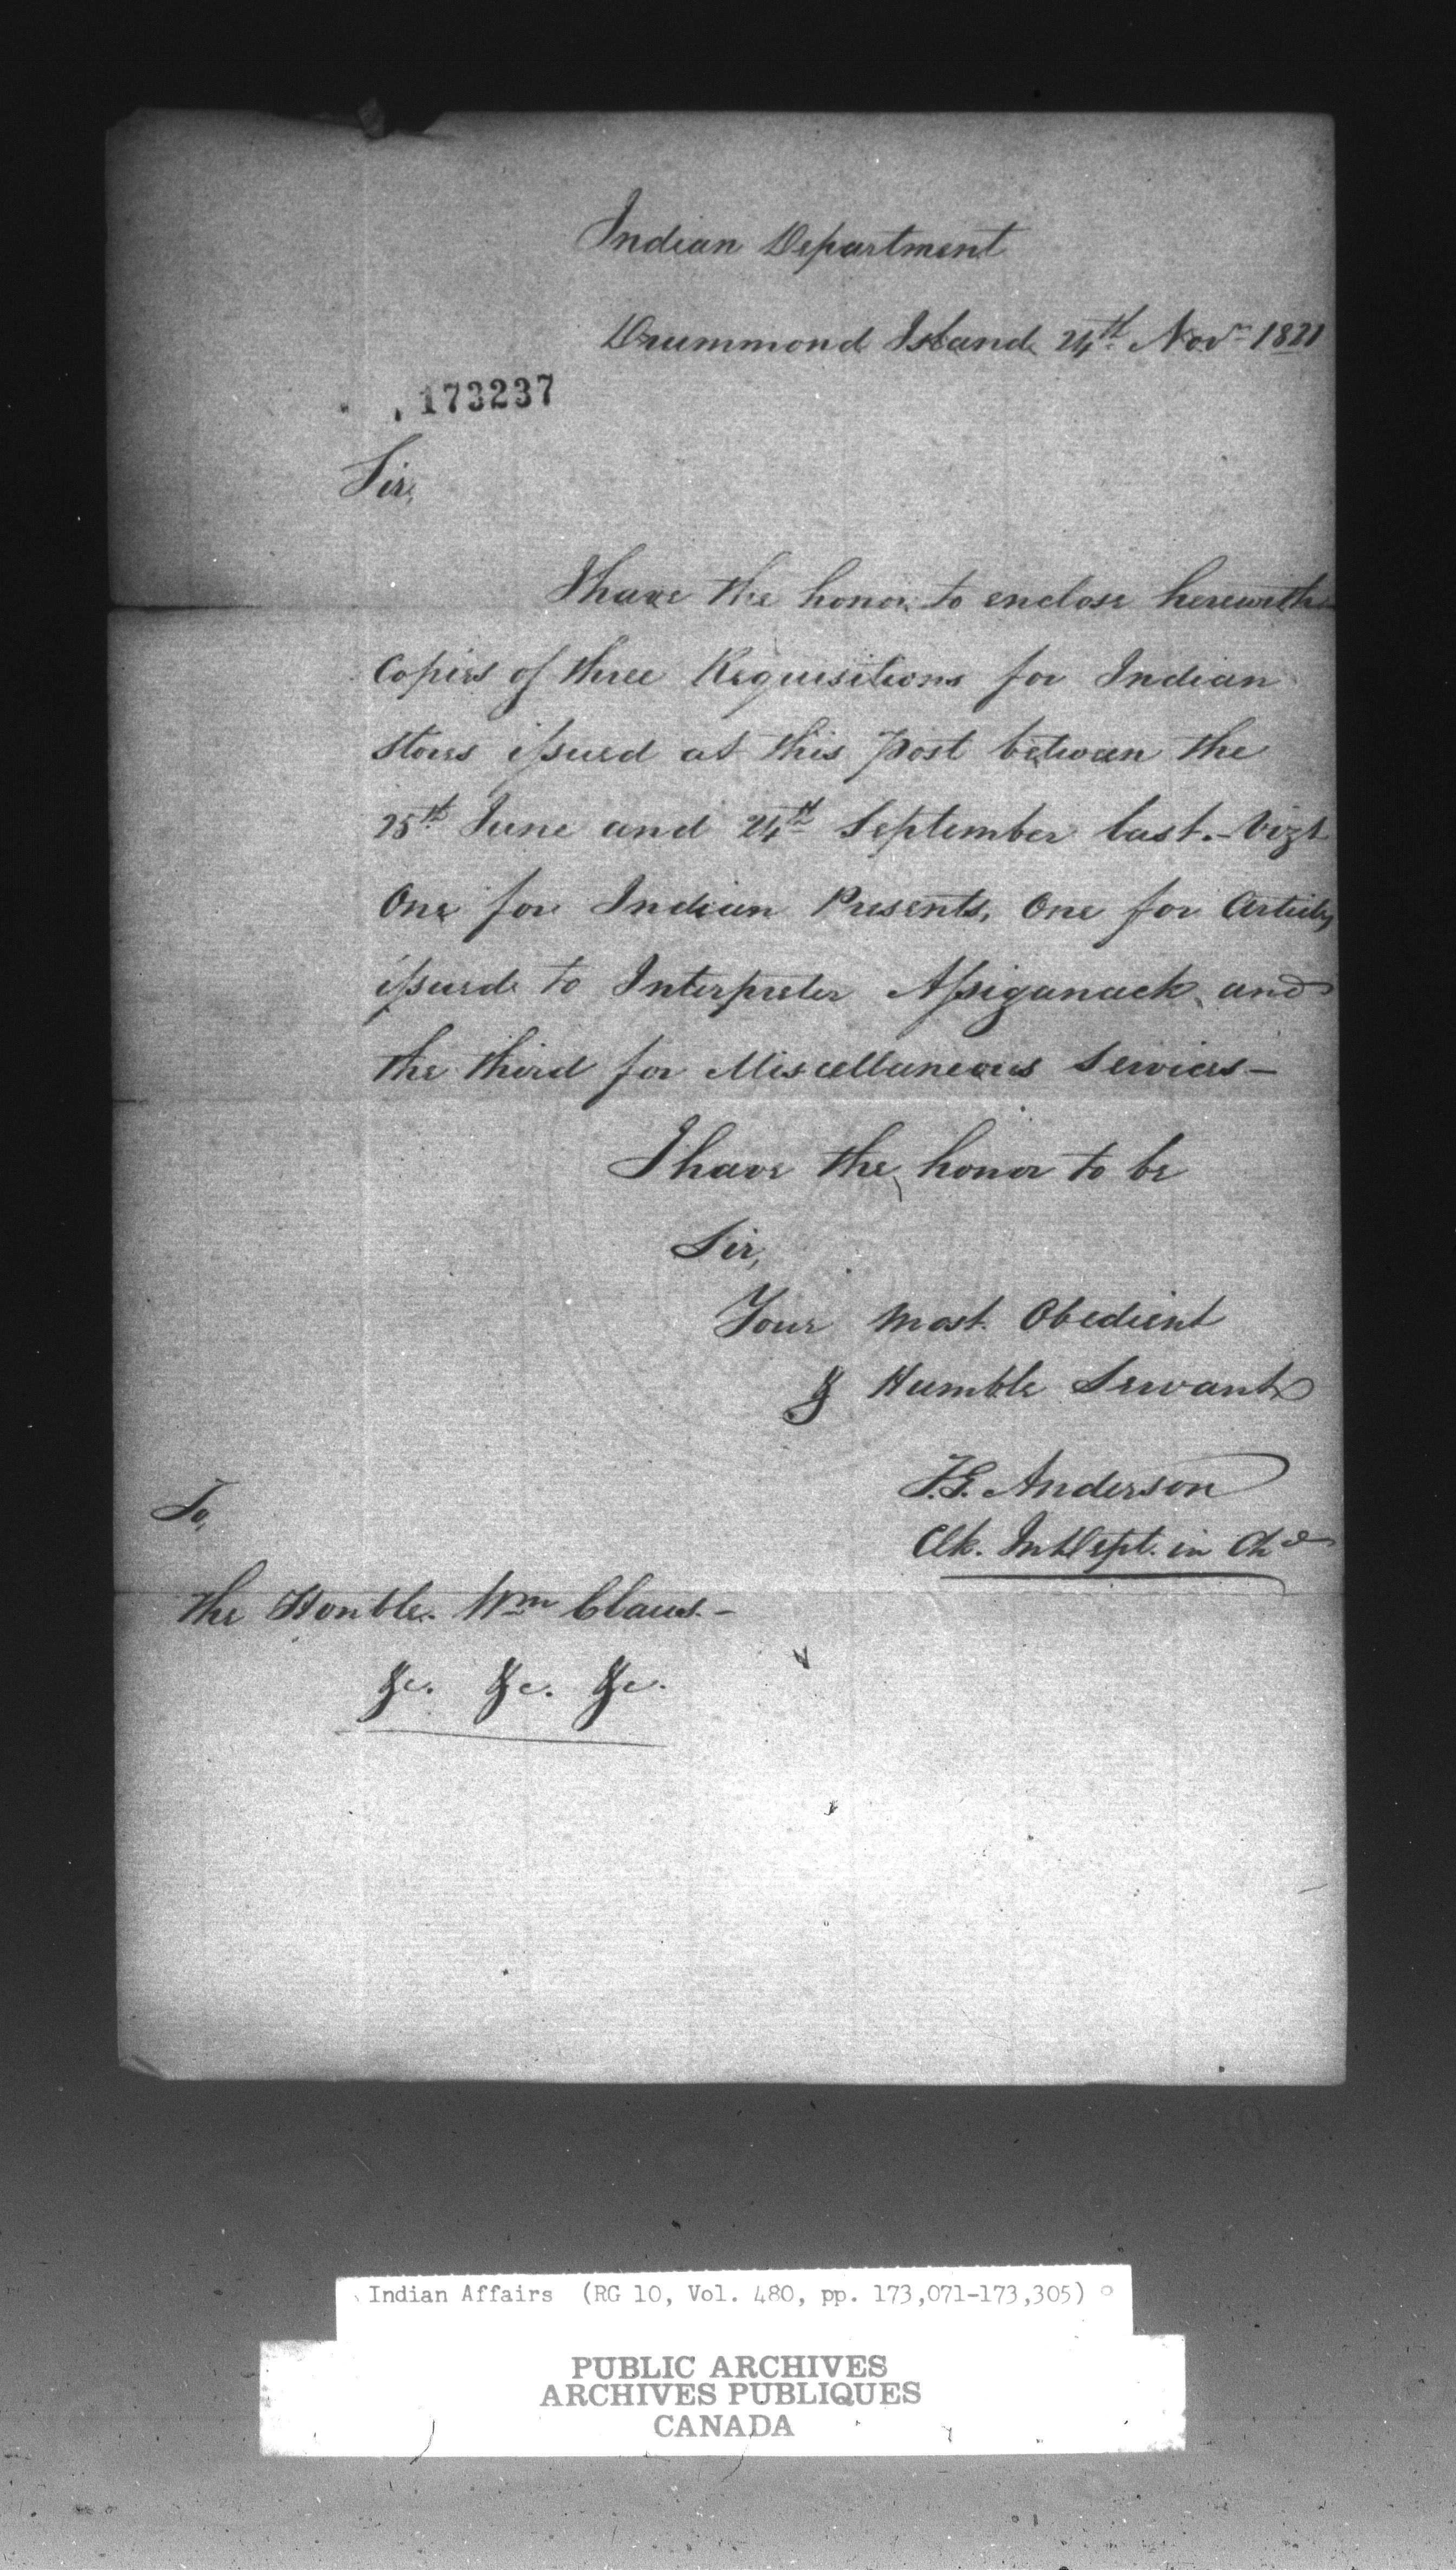 Indian Department
Drummond Island 24th Novr 1821
173237
Sir,
I have the honor to enclose herewith
Copies of three Requisitions for Indian
Stores issued at this Post between the
25th June and 24th September last.- Vizt
One for Indian Presents, One for Articles
issued to Interpreter Assiganack and
the third for Miscellaneous Services-
I have the honor to be
Sir,
Your Most Obedient
& Humble Servant
T.G. Anderson
Clk. Ind Dept. in Che
To,
The Honble. Wm Claus.-
&c. &c. &c.
Indian Affairs (RG 10, Vol. 480, pp. 173,071-173,305)
PUBLIC ARCHIVES
ARCHIVES PUBLIQUES
CANADA